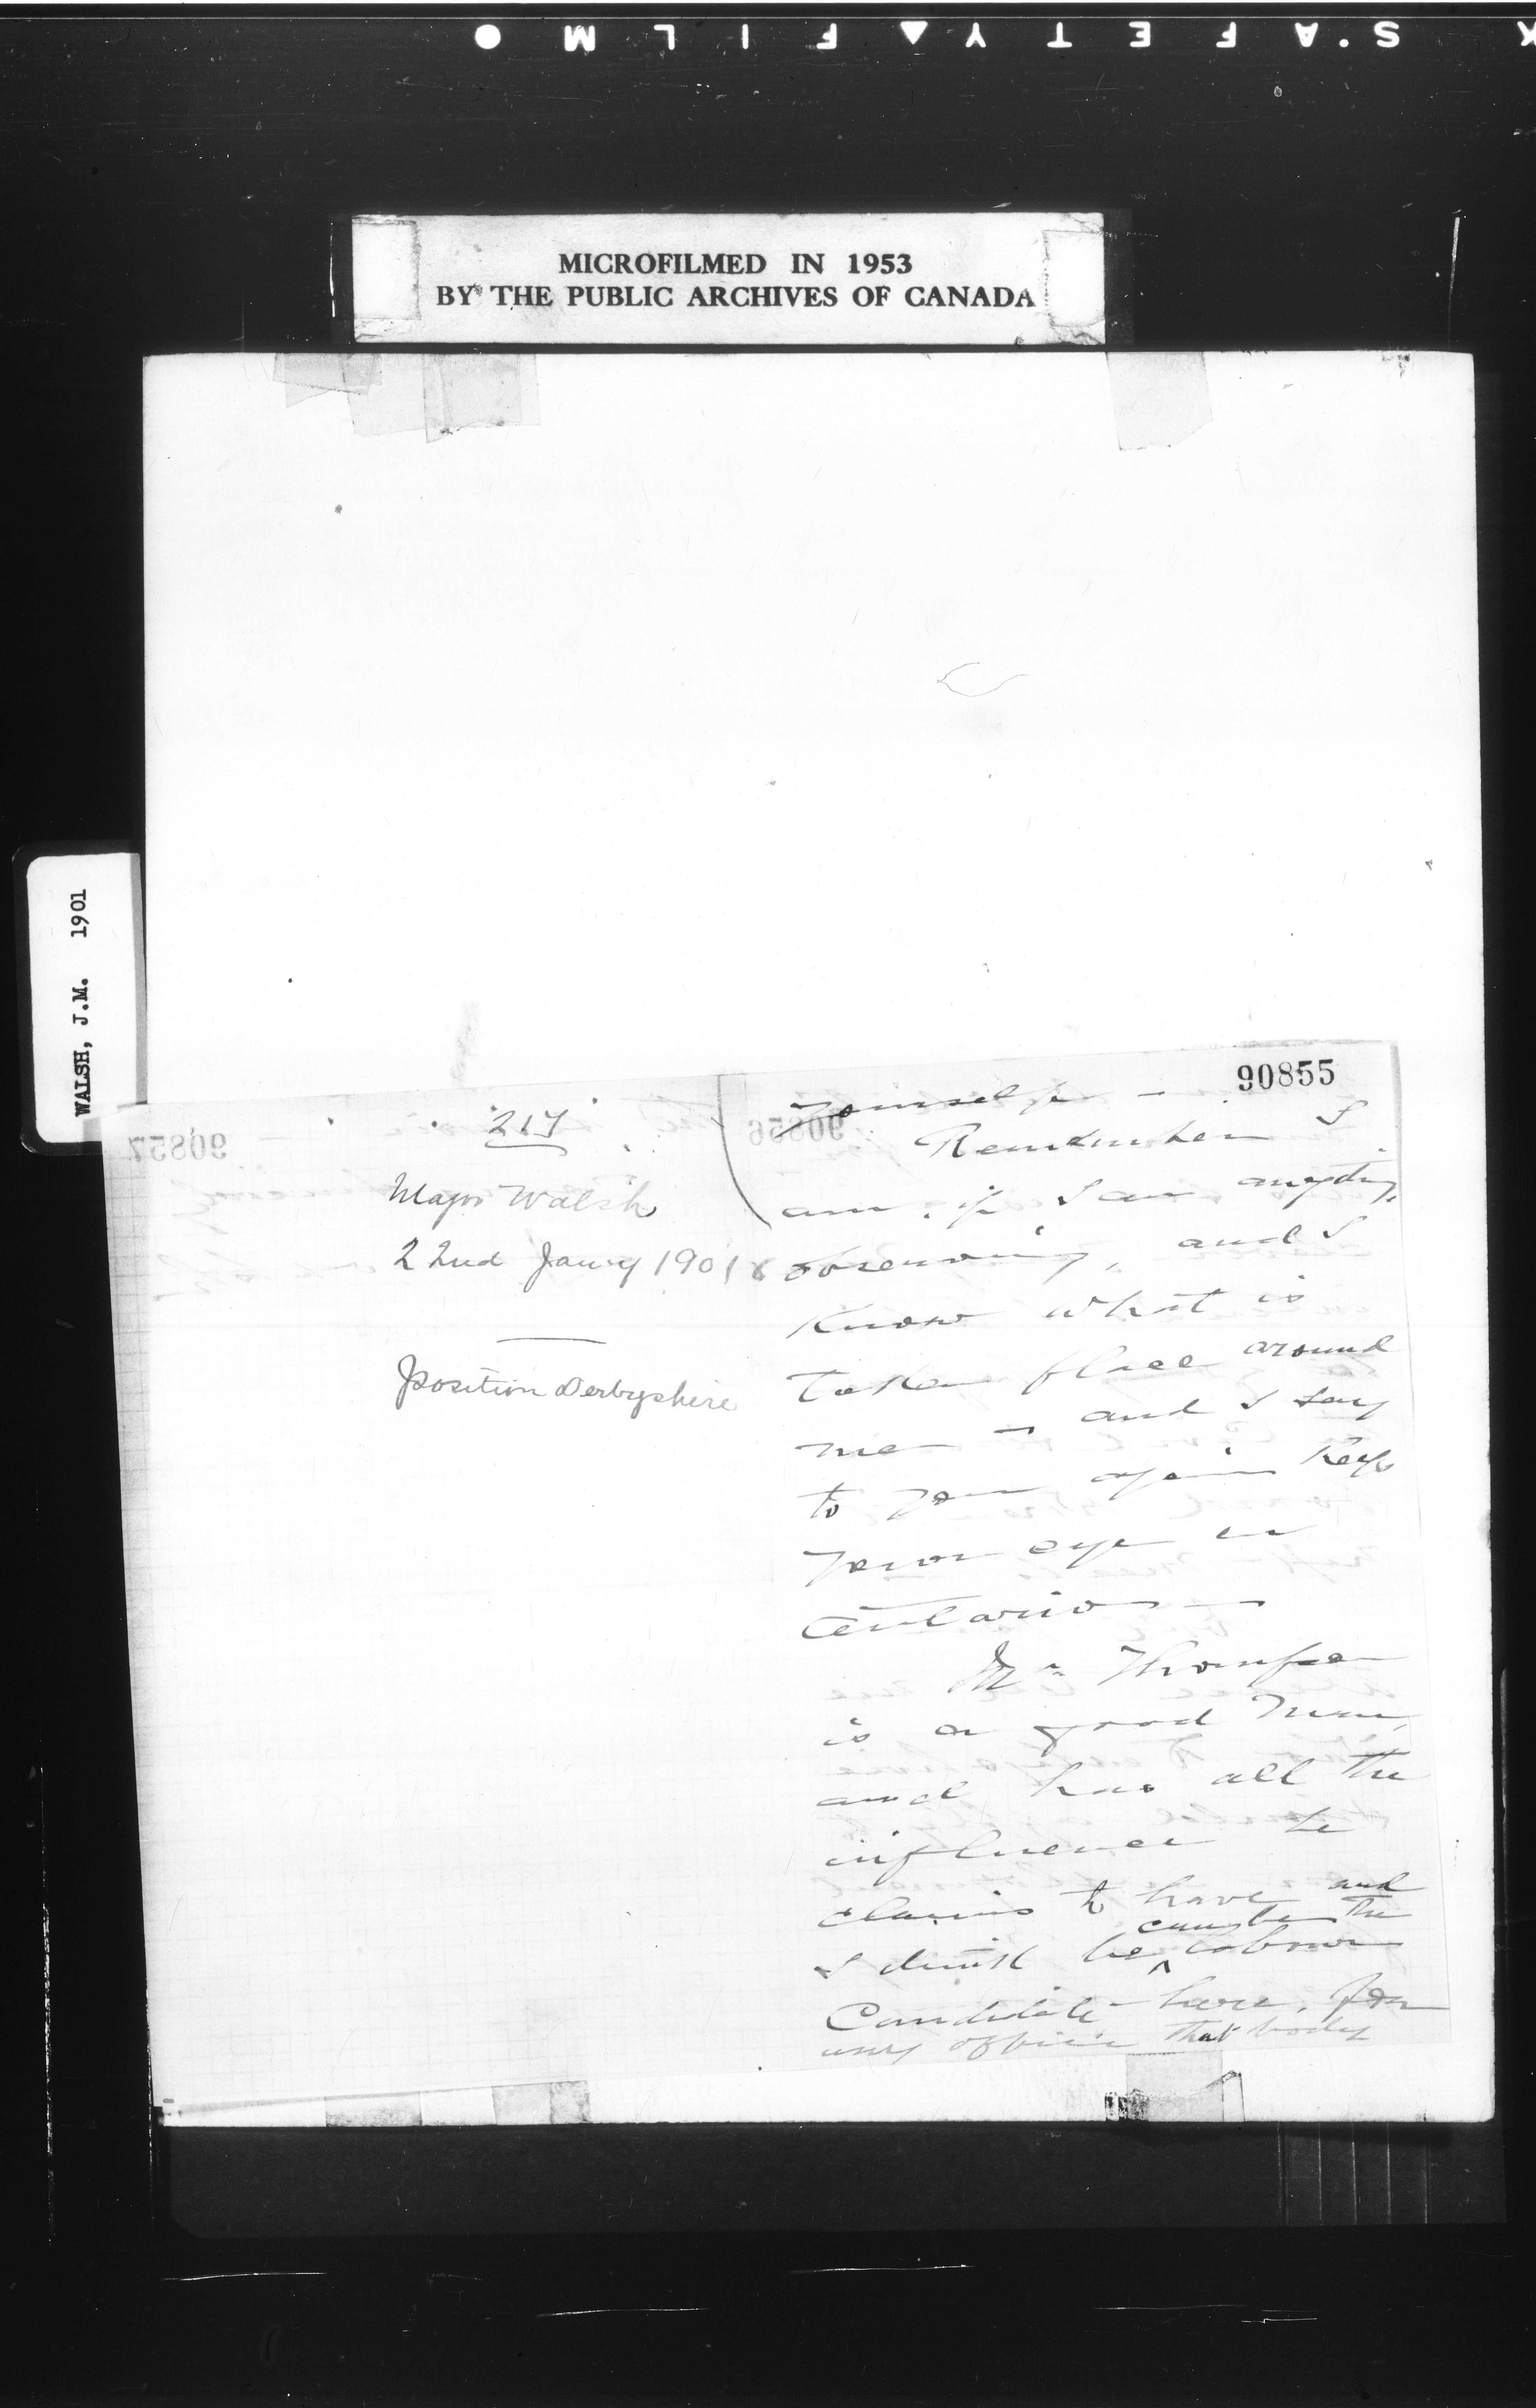 K SAFETY ▲ FILM ●
MICROFILMED IN 1953
BY THE PUBLIC ARCHIVES OF CANADA
WALSH, J.M. 1901
217
Major Walsh
22nd Jany 1901
Position Derbyshire
90855
90856
90857
yourself —
Remember I
am, if I am anything,
observing, and I
know what is
taken place around
me — and I say
to you again keep
your eye on
Ontario —
Mr Thompson
is a good man,
and has all the
influence he
claims to have and
I think he can be the labour
Candidate here, for
any office that body